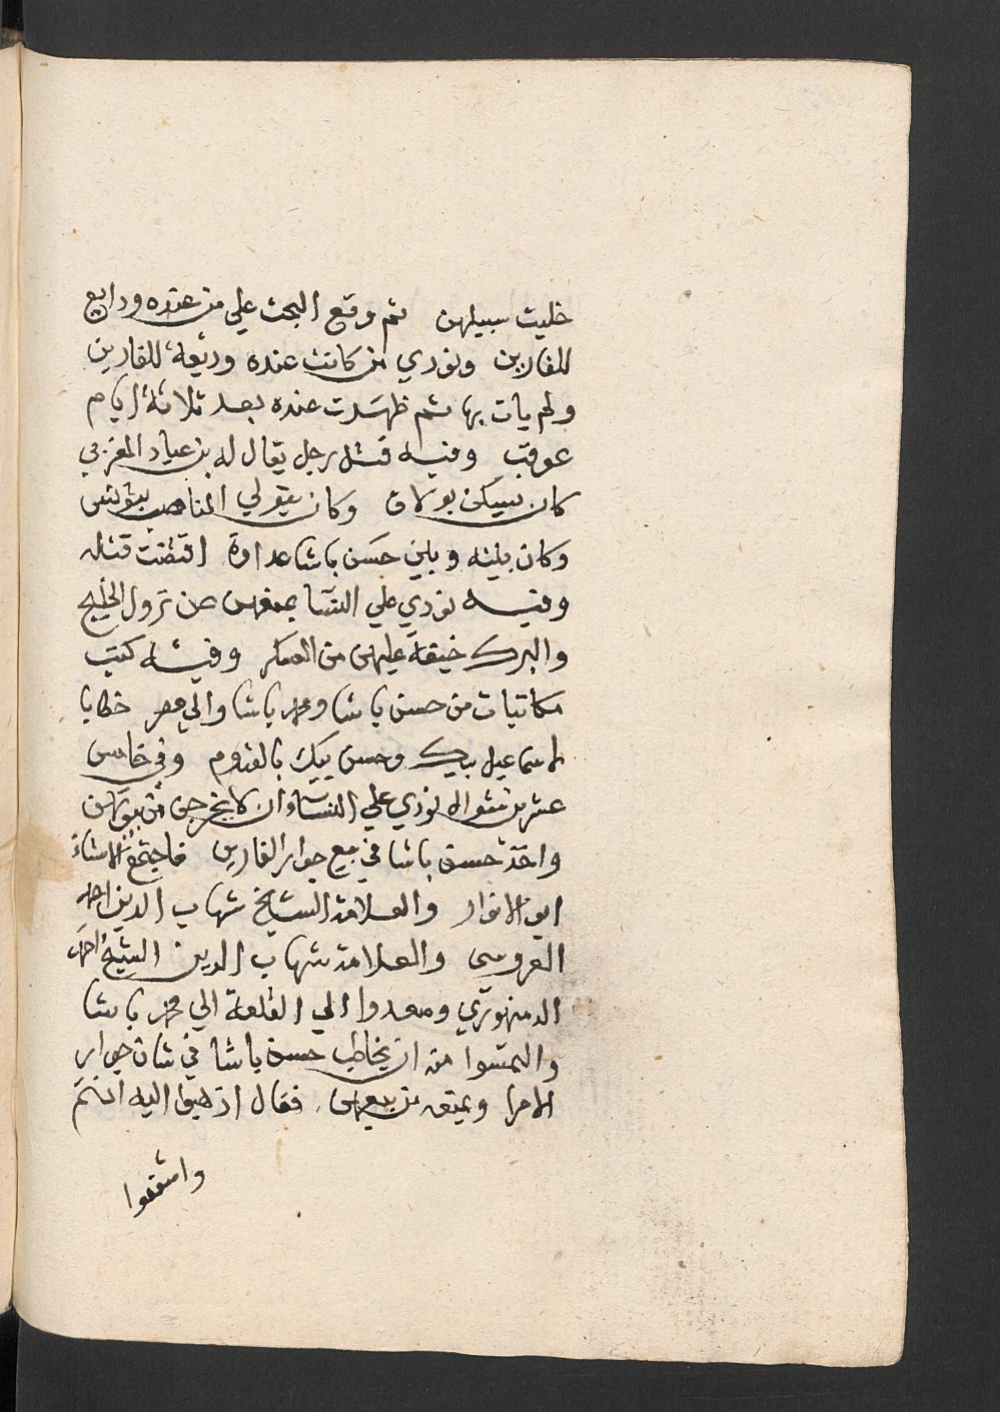 خليت سبيلهن ثم وقع البحث علي من عنده ودايع
للفارين ونودي من كانت عنده وديعة للفارين
ولم يات بها ثم ظهرت عنده بعد ثلاثة ايام
عوقب وفيه قتل رجل يقال له بن عياد المغربي
كان يسكن بولاق وكان يتولي المناصب بتونس
وكان بينه وبين حسن باشا عداوة اقتضت قتله
وفيه نودي علي النسا بمنعهن من نزول الخليج
والبرك خيفة عليهن من العسكر وفيه كتب
مكاتبات من حسن باشا ومحمد باشا والي مصر خطابا
لاسماعيل بيك وحسن بيك بالقدوم وفي خامس
عشرين شوال نودي علي النساء ان لا يخرجن من بيوتهن
واخذ حسن باشا في بيع جوار الفارين فاجتمع الاستاذ
ابو الانوار والعلامة الشيخ شهاب الدين احمد
العروسي والعلامة شهاب الدين الشيخ احمد
الدمنهوري وصعدوا الي القلعة الي محمد باشا
والتمسوا منه ان يخاطب حسن باشا في شان جوار
الامرا ويمنعه من بيعهن فقال اذهبوا اليه انتم
واشفعوا